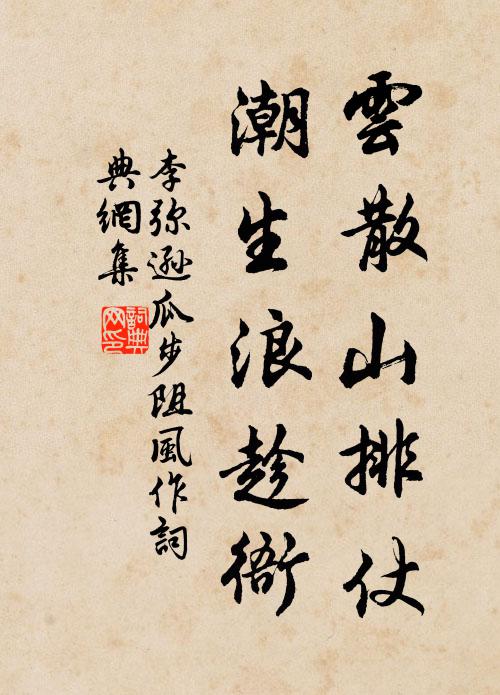 雲散山排仗
潮生浪趁衙
李弥遜瓜步阻風作詞
典網集
詞典
网印